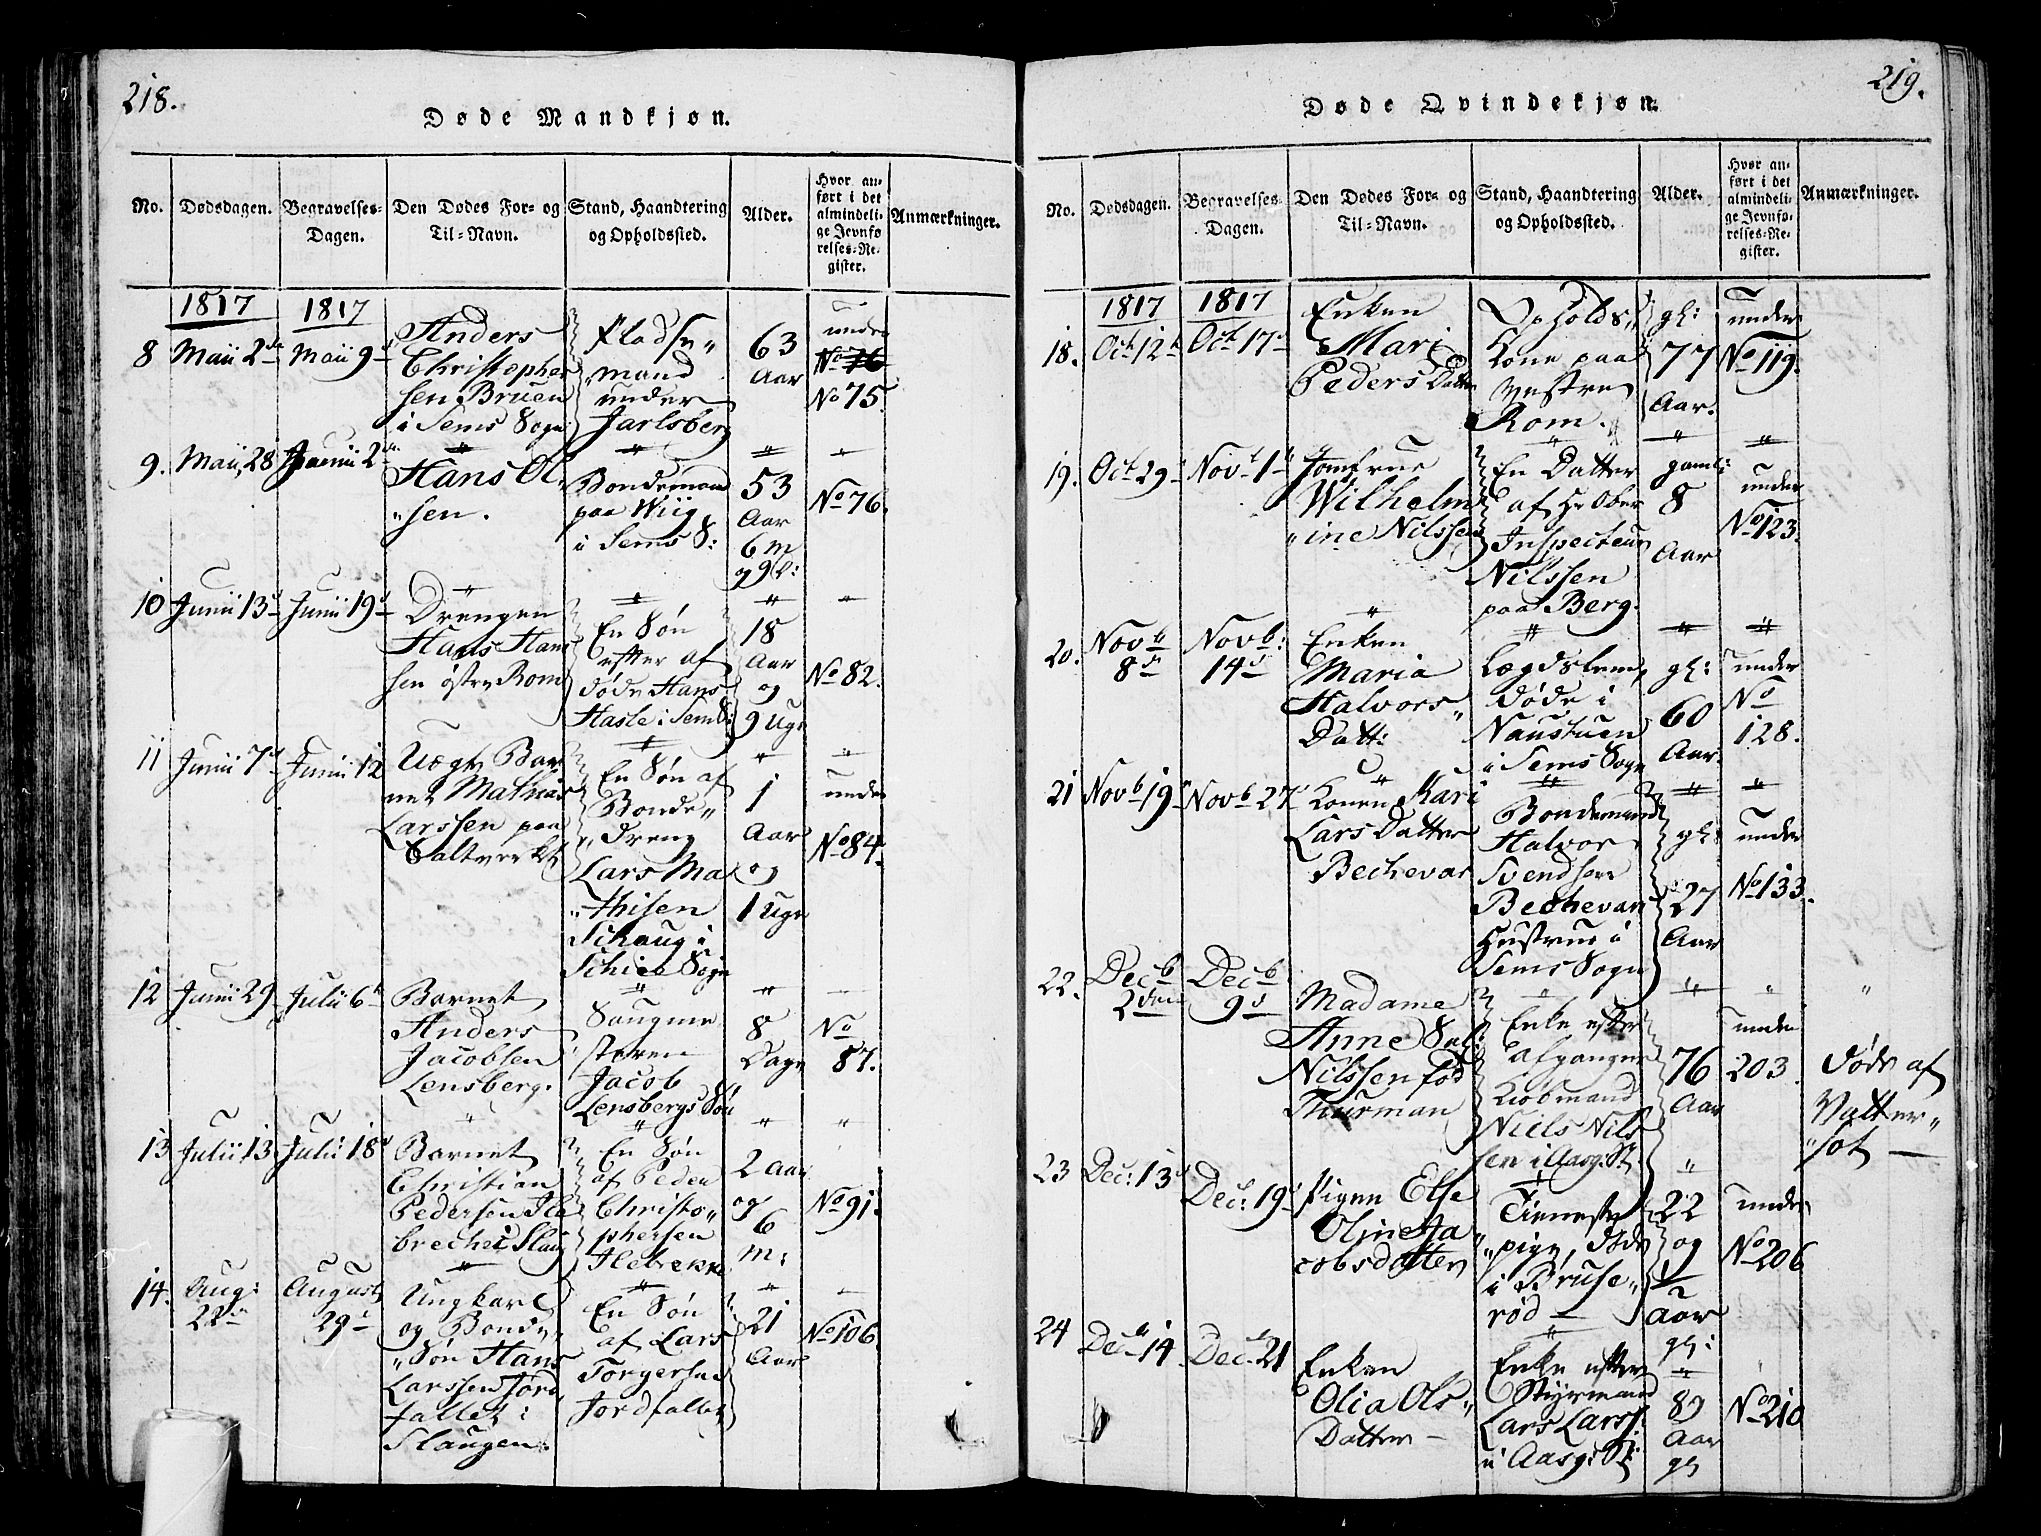 218.
Døde Mandkjøn.
No.
Dødsdagen.
Begravelses-
Dagen.
Den Dødes For- og
Til-Navn.
Stand, Haandtering
og Opholdssted.
Alder.
Hvor an-
ført i det
almindeli-
ge Jevnfø
relses-Re-
gister.
Anmærkninger.
1817
1817
8
Maii 2de
Maii 9d
Anders
Christopher
sen Bruen
i Sems Sogn
Pladse„
„mand
under
Jarlsberg
63
Aar
under
No 76
No 75.
9.
Maii, 28
Junii 2den
Hans Ol
„sen.
Bondemand
paa Wiig
i Sems S:
53
Aar
6 m
og 9 d:
No 76.
10
Junii 13d
Junii 19d
Drengen
Hans Han
sen østre Rom
En Søn
efter af
døde Hans
Hasle i Sem S:
18
Aar
og
9 Uge
No 82.
11
Junii 7d
Junii 12
Uægte Bar
net Mathias
Larssen paa
Saltverket
En Søn af
Bonde„
„dreng
Lars Ma
„thisen
Schaug i
Schiee Sogn
1
Aar
og
1 Uge
under
No 84.
12
Junii 29
Julii 6t
Barnet
Anders
Jacobsen
Lensberg.
Saugme
steren
Jacob
Lensbergs Søn
8
Dage
No
87.
13
Julii 13
Julii 18d
Barnet
Christian
Pedersen Ile
brechei Slaug
En Søn
af Peder
Christo„
phersen
Ilebrekke
2 Aar
og
6
m:
No 91.
14.
Aug:
22de
August
29d
Ungkarl
og Bonde„
„Søn Hans
Larssen Jord
fallet i
Slaugen.
En Søn
af Lars
Torgersen
Jordfallet
21
Aar
No 106
219.
Døde Qvindekjøn.
No.
Dødsdagen.
Begravelses-
Dagen.
Den Dødes For- og
Til-Navn.
Stand, Haandtering
og Opholdssted.
Alder.
Hvor an-
ført i det
almindeli-
ge Jevnfø-
relses-Re-
gister.
Anmærkninger.
1817
1817
18.
Oct 12t
Oct 17d
Enken
Mari
Peders Datter
Opholds„
Kone paa
Vestre
Rom.
gl:
77
Aar.
under
No 119.
19.
Oct 29d
Novb 1d
Jomfrue
Wilhelm
„ine Nilssen
En Datter
af Hr Ober
Inspecteur
Nilssen
paa Berg.
gaml:
8
Aar
under
No 123.
20.
Novb
8d
Novb:
14d
Enken
Maria
Halvors„
Datt:
Lægdslem,
døde i
Naustuen
i Sems Sogn
gl:
60
Aar.
under
No
128.
21
Novb 19d
Novb 27d
Konen Kari
Lars Datter
Bechevar
Bondemand
Halvor
Svendsen
Bechevar
Hustrue i
Sems Sogn
gl:
27
Aar
under
No 133.
22.
Decb
2den
Decb
9d
Madame
Anne Sal:
Nilssen fød
Thurman
Enke efter
afgangne
Kiøbmand
Niels Nils
sen i Aasg: St:
76
Aar
under
203.
Døde af
Vatter„
„sot —
23
Dec: 13d
Dec: 19d
Pigen Else
Oline Ja„
cobsdatter
Tieneste
„pige, døde
i Bruse„
rød —
22
og
1/2
Aar
gl:
under
No 206
24
Dec 14
Dec 21
Enken
Olia Ols„
Datter —
Enke efter
Styrmand
Lars Larss:
i Aasg: St:
89
Aar
gl
No 210